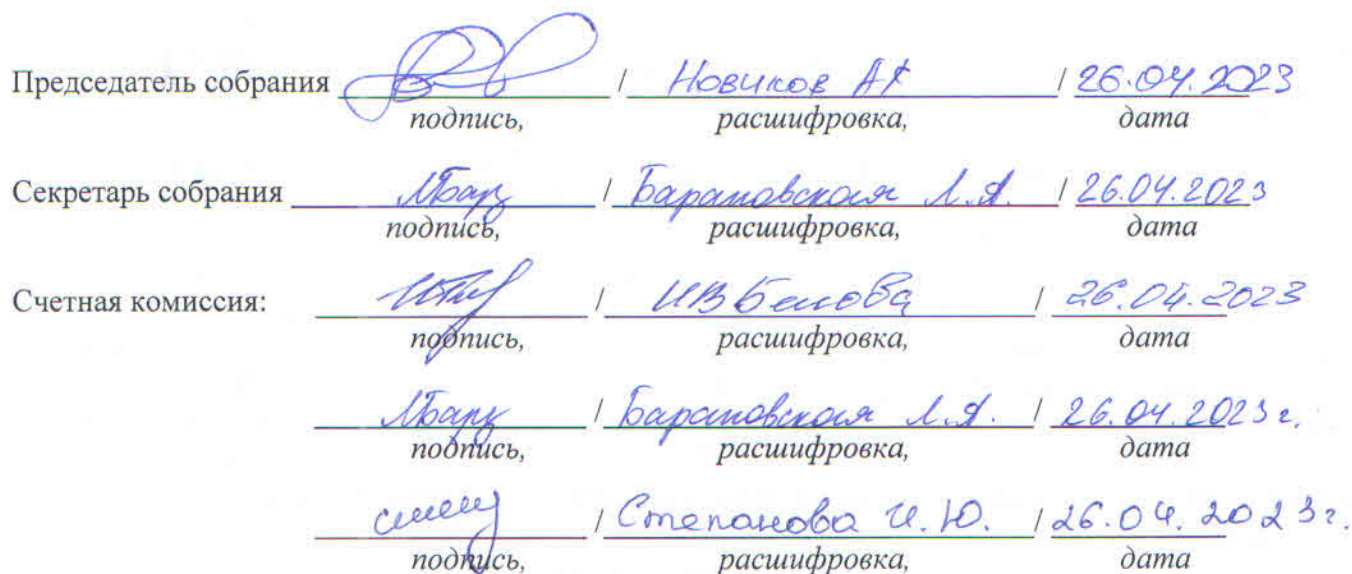 Председатель собрания / Новиков А / 26.04.2023
подпись, расшифровка, дата
Секретарь собрания / Барановская Л.А. / 26.04.2023
подпись, расшифровка, дата
Счетная комиссия: / ИВ Белова / 26.04.2023
подпись, расшифровка, дата
/ Барановская Л.А. / 26.04.2023г.
подпись, расшифровка, дата
/ Степанова И.Ю. / 26.04.2023г.
подпись, расшифровка, дата